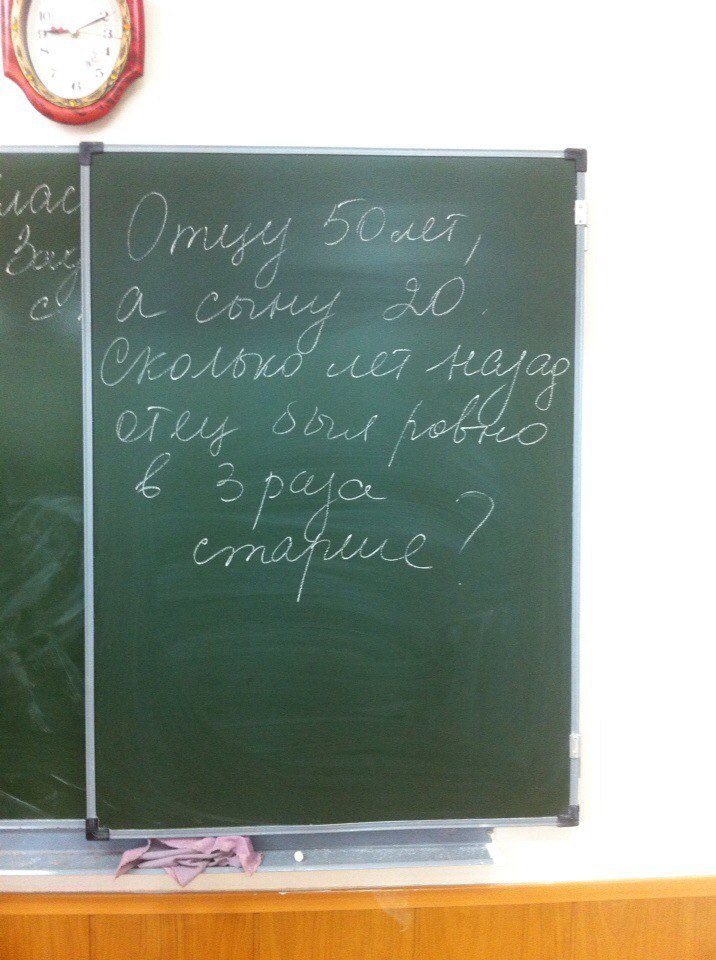 Отцу 50 лет,
а сыну 20.
Сколько лет назад
отец был ровно
в 3 раза
старше?